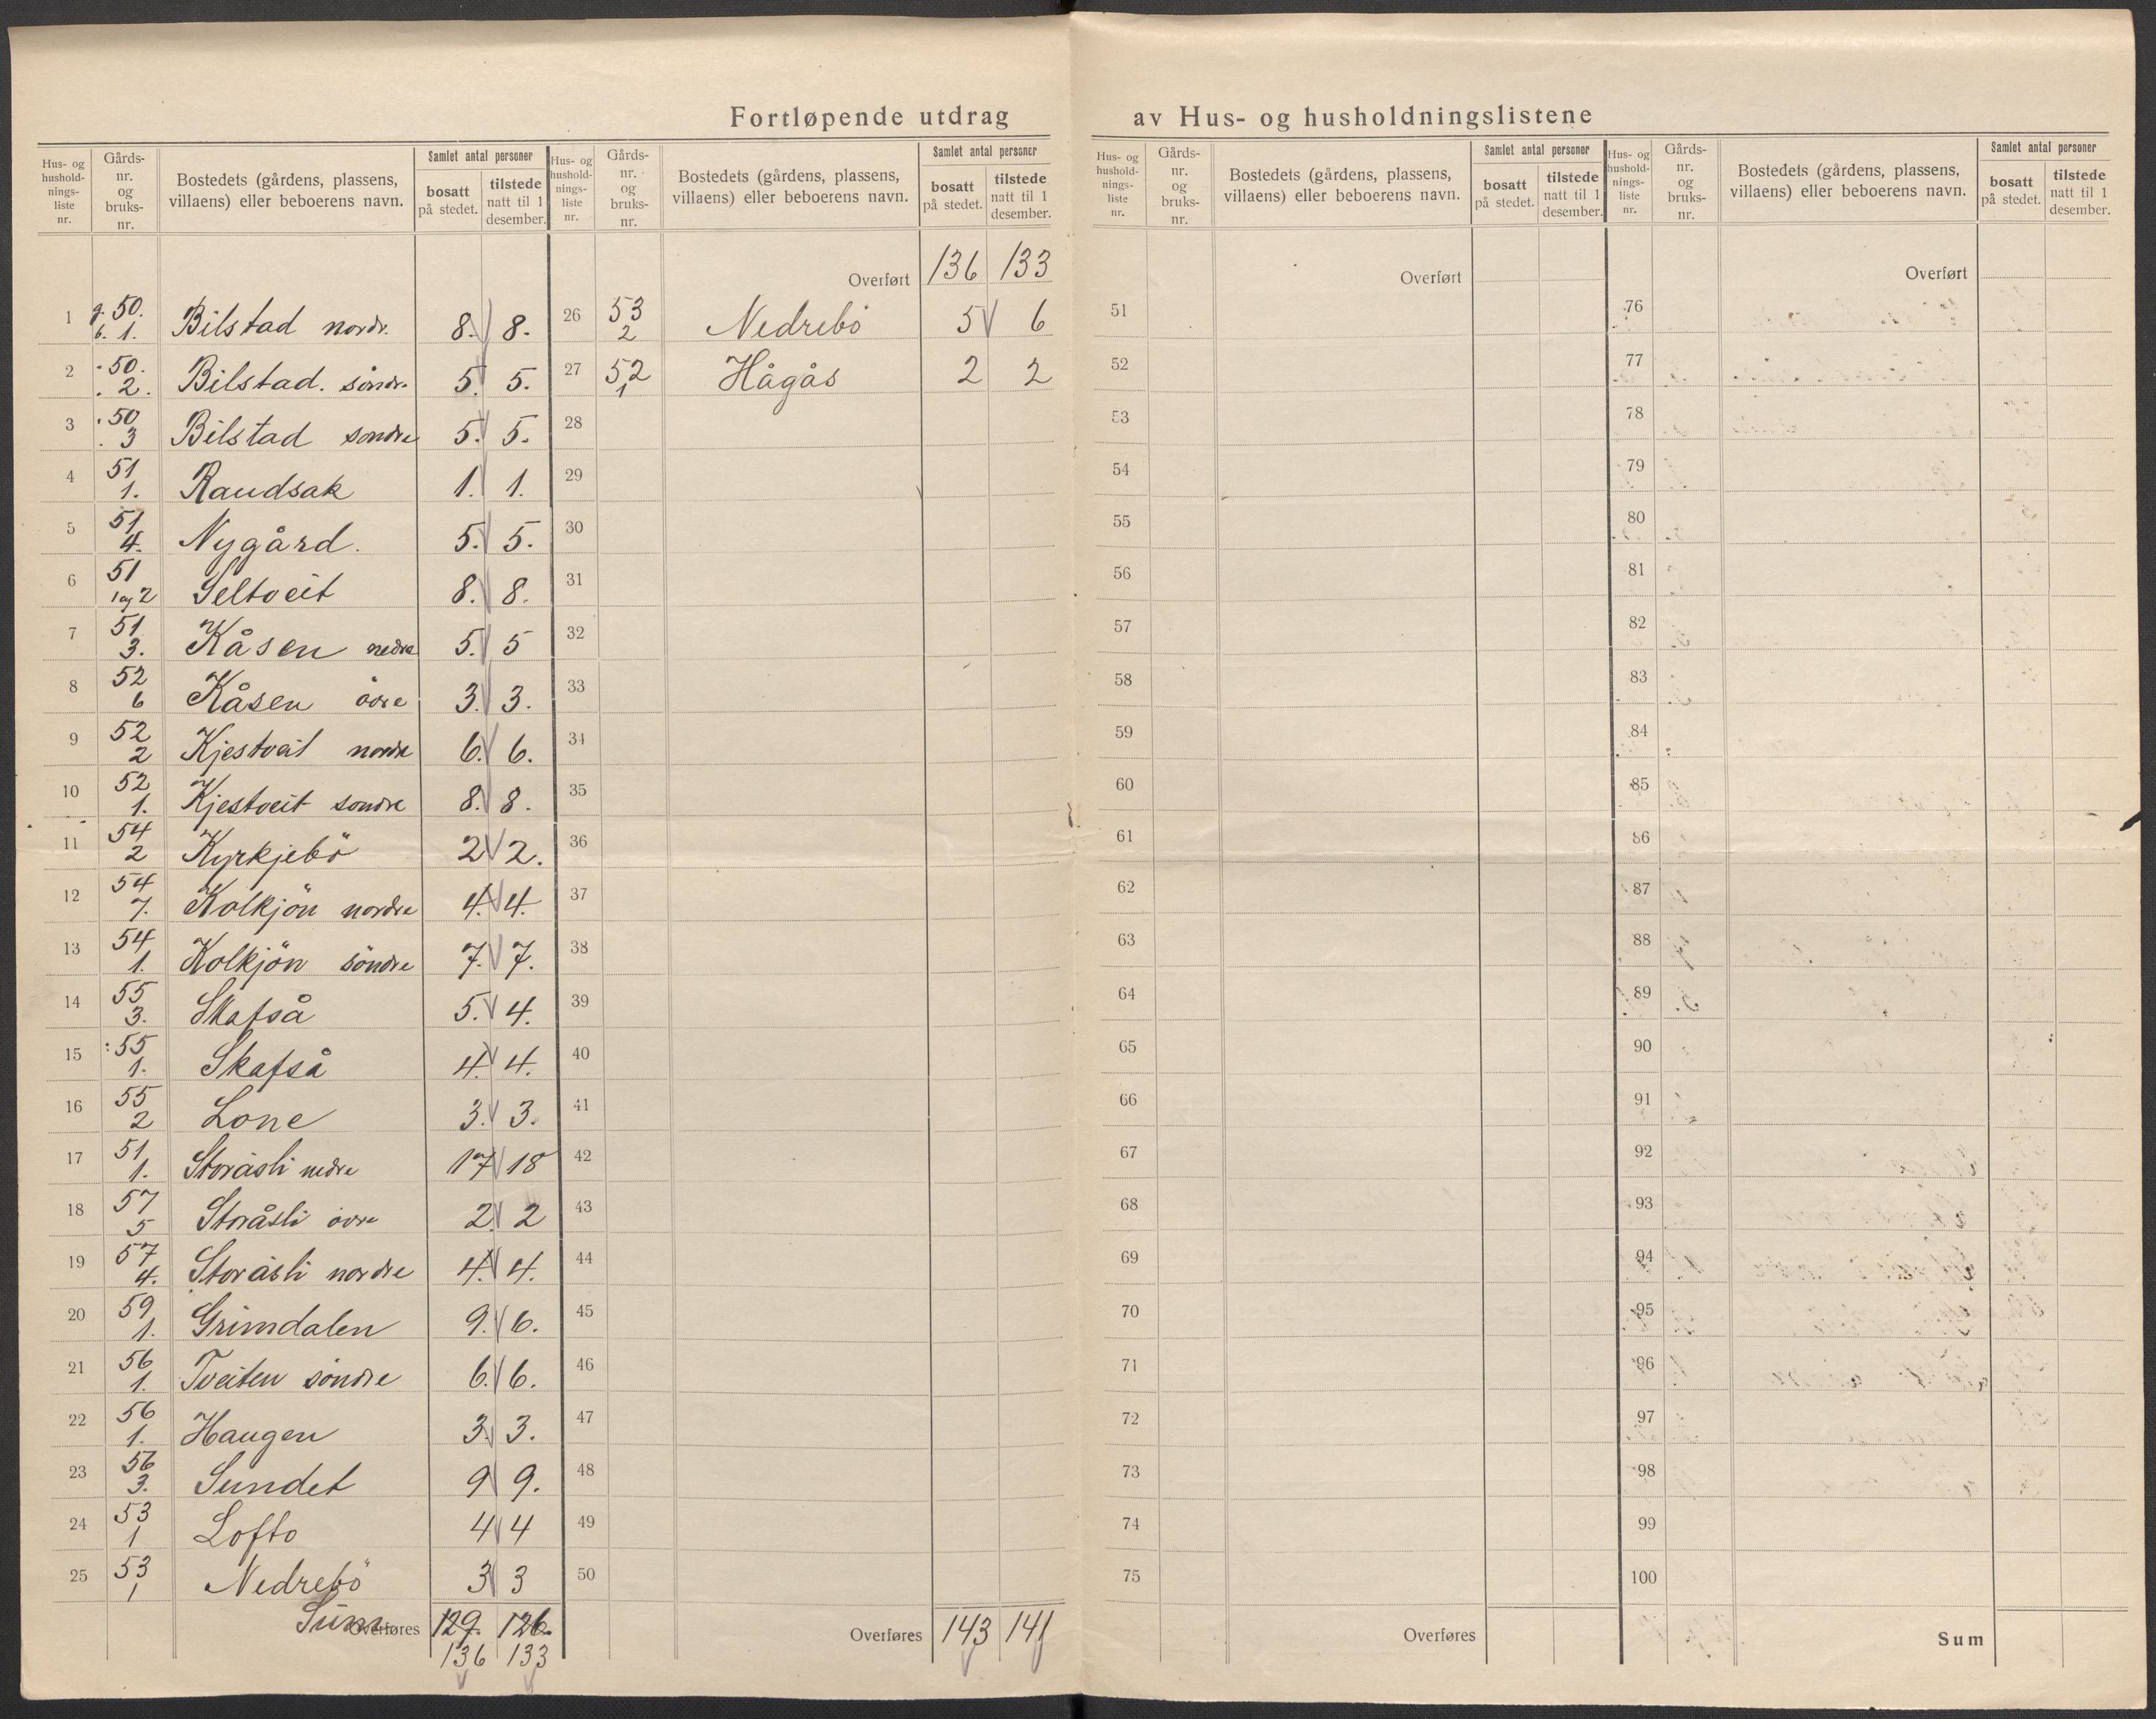 Fortløpende utdrag av Hus- og husholdningslistene
Hus- og hushold-nings-liste nr. Gårds-nr. og bruks-nr. Bostedets (gårdens, plassens, villaens) eller beboerens navn. Samlet antal personer bosatt på stedet. tilstede natt til 1 desember.
1 g. 50. b. 1. Bilstad nordr. 8. 8.
2 50. 2. Bilstad. söndr. 5. 5.
3 50 3 Bilstad söndre 5. 5.
4 51 1. Raudsak 1. 1.
5 51 4. Nygård. 5. 5.
6 51 1 og 2 Seltveit 8. 8.
7 51 3. Kåsen nedre 5. 5
8 52 6 Kåsen övre 3. 3.
9 52 2 Kjestveit nordre 6. 6.
10 52 1. Kjestveit sondre 8. 8.
11 54 2 Kyrkjebö 2 2.
12 54 7. Kolkjön nordre 4. 4.
13 54 1. Kolkjön söndre 7. 7.
14 55 3. Skafså 5. 4.
15 55 1. Skafså 4. 4.
16 55 2 Lone 3. 3.
17 51 1. Storåsli nedre 17 18
18 57 5 Storåsli övre 2. 2
19 57 4. Storåsli nordre 4. 4.
20 59 1. Grimdalen 9. 6.
21 56 1. Tveiten söndre 6. 6.
22 56 1. Haugen 3. 3.
23 56 3. Sundet 9 9.
24 53 1 Lofto 4 4
25 53 1 Nedrebö 3 3
Sum Overføres 129. 126.
136 133
Hus- og hushold-nings-liste nr. Gårds-nr. og bruks-nr. Bostedets (gårdens, plassens, villaens) eller beboerens navn. Samlet antal personer bosatt på stedet. tilstede natt til 1 desember.
Overført 136 133
26 53 2 Nedrebö 5 6
27 52 1 Hågås 2 2
28
29
30
31
32
33
34
35
36
37
38
39
40
41
42
43
44
45
46
47
48
49
50
Overføres 143 141
Hus- og hushold-nings-liste nr. Gårds-nr. og bruks-nr. Bostedets (gårdens, plassens, villaens) eller beboerens navn. Samlet antal personer bosatt på stedet. tilstede natt til 1 desember.
Overført
51
52
53
54
55
56
57
58
59
60
61
62
63
64
65
66
67
68
69
70
71
72
73
74
75
Overføres
Hus- og hushold-nings-liste nr. Gårds-nr. og bruks-nr. Bostedets (gårdens, plassens, villaens) eller beboerens navn. Samlet antal personer bosatt på stedet. tilstede natt til 1 desember.
Overført
76
77
78
79
80
81
82
83
84
85
86
87
88
89
90
91
92
93
94
95
96
97
98
99
100
Sum